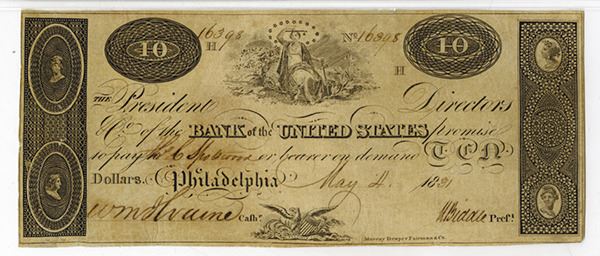 10 16398 Nº 16398 10
H H
THE President Directors
& Cº. of the BANK of the UNITED STATES promise
to pay C or bearer on demand TEN
Dollars. Philadelphia May 4. 1831
Wm McIlvaine Cashr. N Biddle Prest.
Murray Draper Fairman & Co.